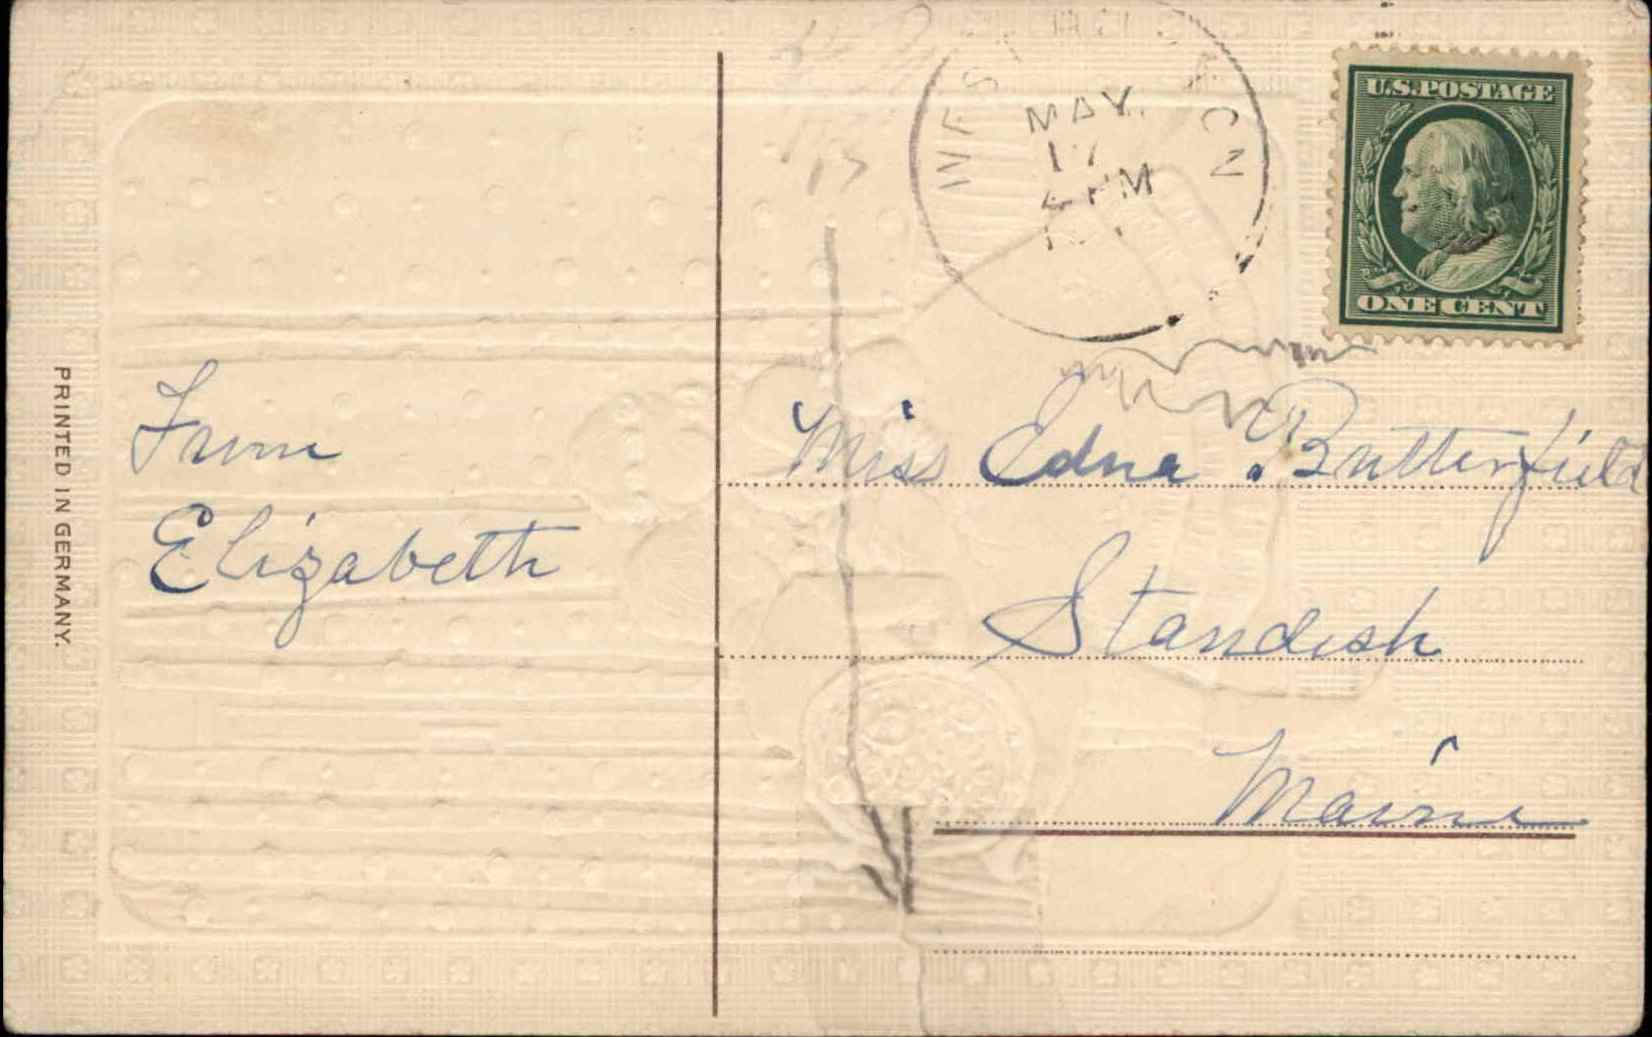 U.S. POSTAGE
ONE CENT
MAY.
17
4 PM
From
Elizabeth
Miss Edna Butterfield
Standish
Maine
PRINTED IN GERMANY.